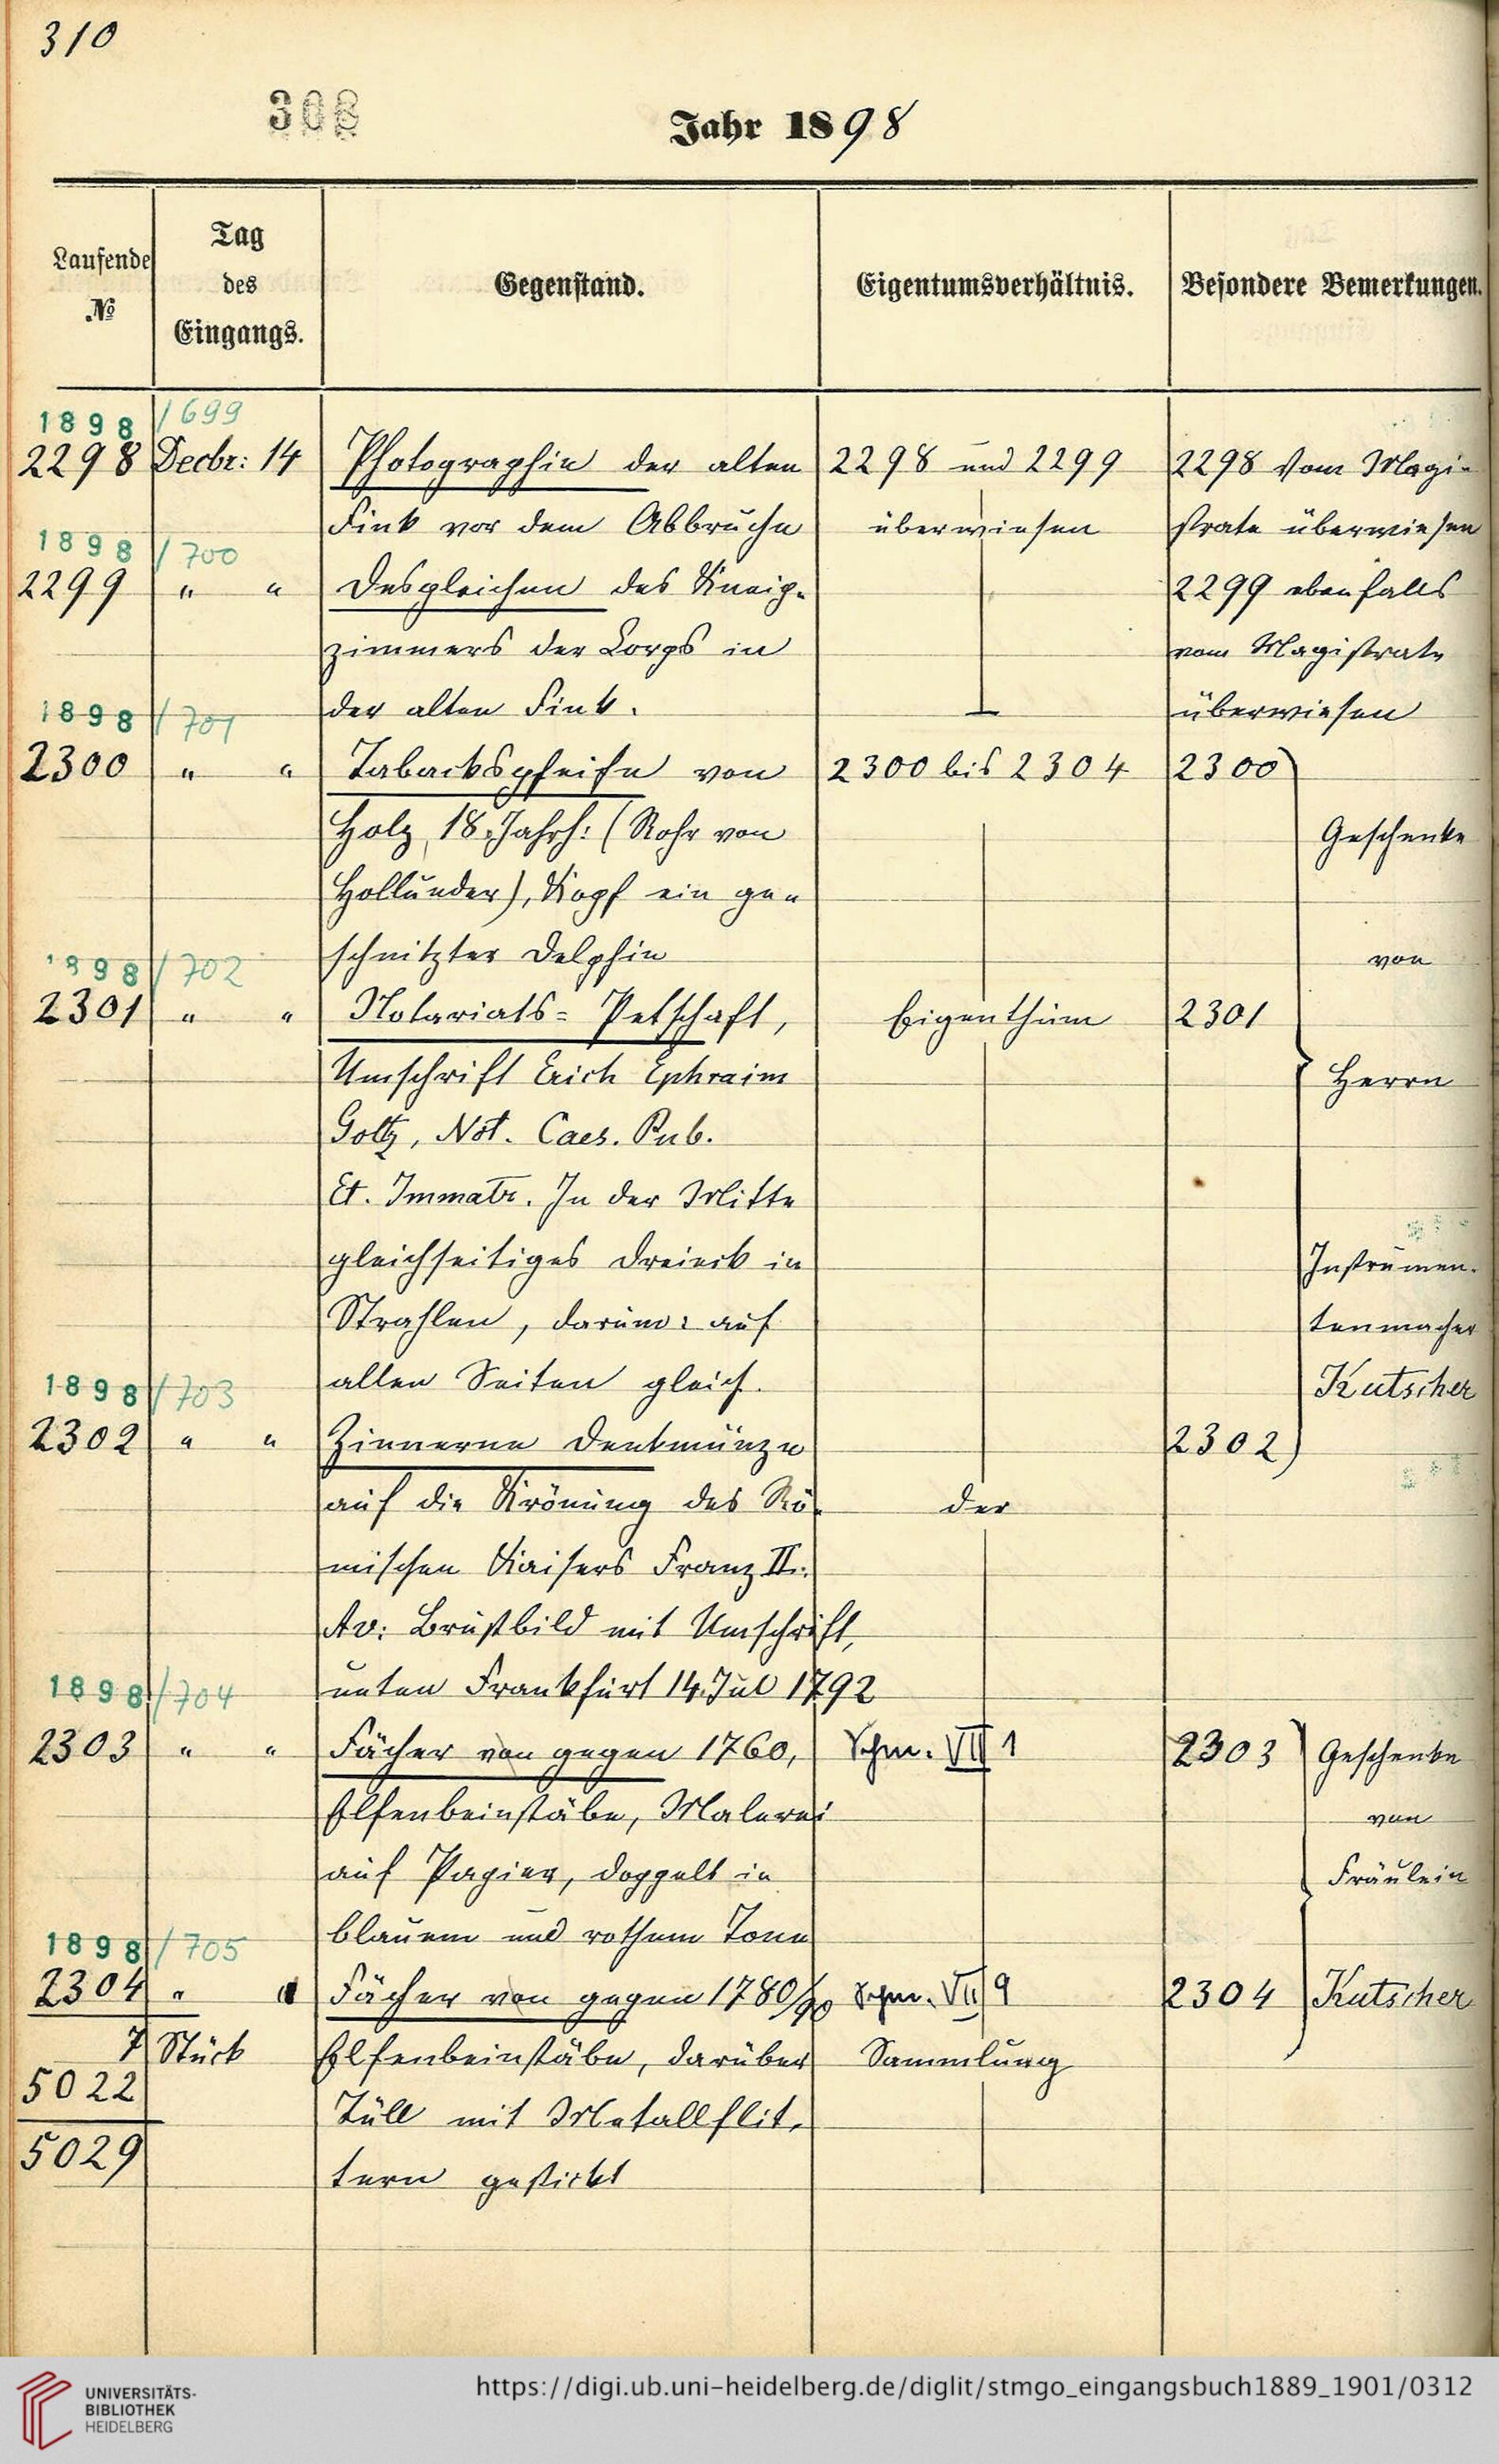 310
308
Jahr 1898
Laufende
No
Tag
des
Eingangs.
Gegenstand.
Eigentumsverhältnis.
Besondere Bemerkungen.
1898/699
2298 Decbr: 14 Photographie der alten 2298 und 2299 2298 Vom Magi-
Fink vor dem Abbruche überwiesen strate überwiesen
1898/700
2299 " " Desgleichen des Kneip- 2299 ebenfalls
zimmers der Corps in vom Magistrate
der alten Fink. überwiesen
1898/701
2300 " " Tabackspfeife von 2300 bis 2304 2300
Holz 18. Jahrh: (Rohr von Geschenke
Hollunder), Kopf ein ge-
schnitzter Delphin von
1898/702
2301 " " Notariats- Petschaft, Eigenthum 2301
Umschrift Erich Ephraim Herrn
Goltz, Not. Caes. Pub.
Et. Immatr. In der Mitte
gleichseitiges Dreieck in Instrumen-
Strahlen, darum: auf tenmacher
allen Seiten gleich. Kutscher
1898/703
2302 " " Zinnerne Denkmünze 2302
auf die Krönung des Rö- der
mischen Kaisers Franz II.
Av: Brustbild mit Umschrift,
unten Frankfurt 14. Jul 1792
1898/704
2303 " " Fächer von gegen 1760, Schm. VII 1 2303 Geschenke
Elfenbeinstäbe, Malerei von
auf Papier, doppelt in Fräulein
blauem und rothem Tone
1898/705
2304 " " Fächer von gegen 1780/90 Schm. VII 9 2304 Kutscher
7 Stück Elfenbeinstäbe, darüber Sammlung
5022
Tüll mit Metallflit-
5029
tern gestickt
UNIVERSITÄTS-
BIBLIOTHEK
HEIDELBERG
https://digi.ub.uni-heidelberg.de/diglit/stmgo_eingangsbuch1889_1901/0312